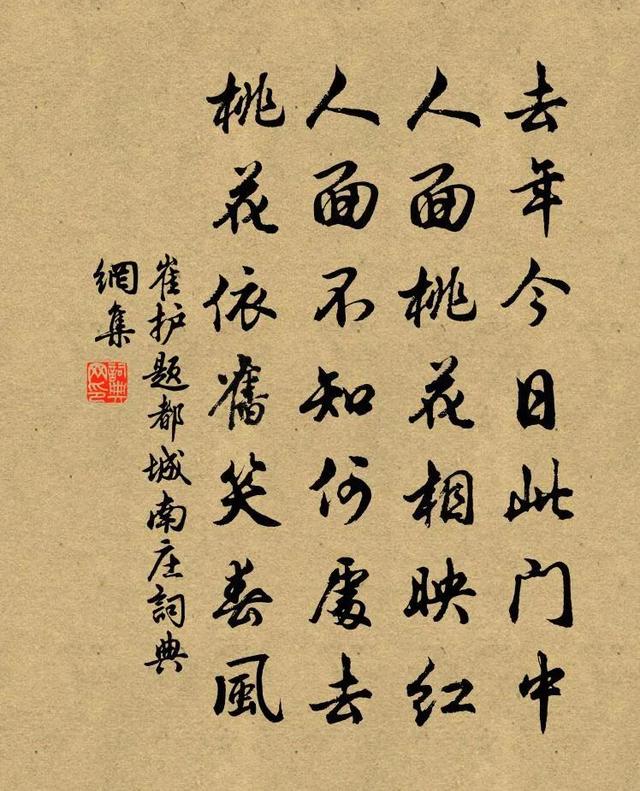 去年今日此门中
人面桃花相映红
人面不知何處去
桃花依舊笑春風
崔护題都城南庄詞典
網集
詞典網印